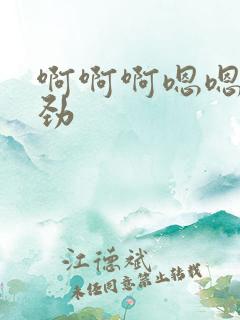 啊啊啊嗯嗯
劲
江德斌
未经同意禁止转载